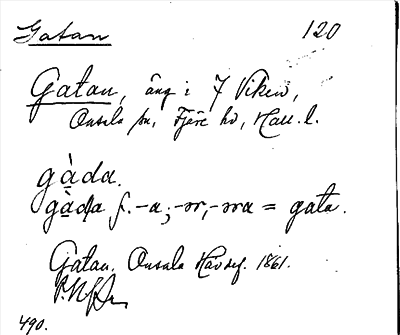 Gatan 120
Gatan, äng i 7 Viken,
Onsala sn, Fjäre hd, Hall. l.
gàda.
gàda f. -a; -ɔr, -ɔra = gata.
Gatan, Onsala Hävdef. 1861.
490.